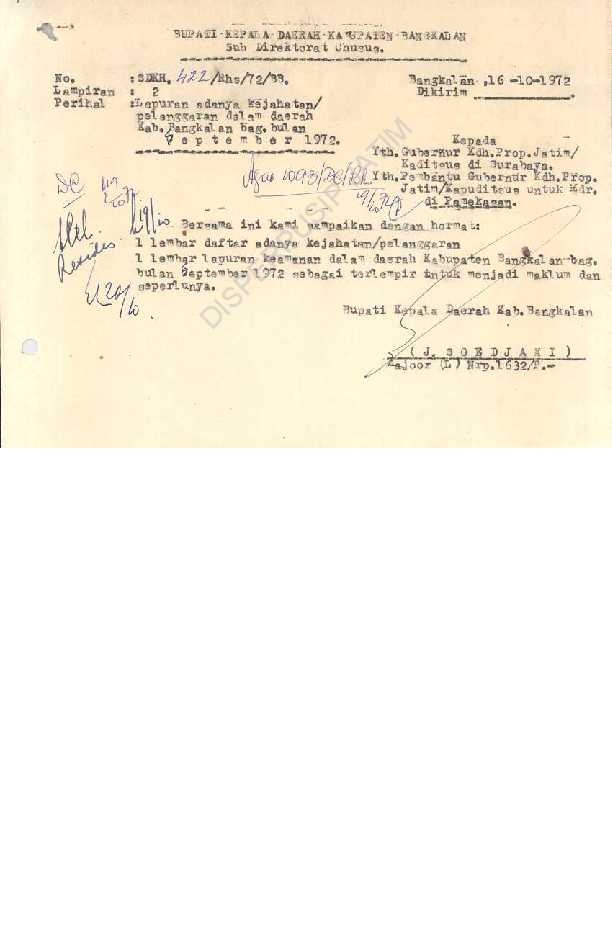 BUPATI KEPALA DAERAH KABUPATEN BANGKALAN
Sub Direktorat Chusus.
No. : SDKH. 422/Khs/72/BB.
Bangkalan ,16 -10-1972
Lampiran : 2
Dikirim
Perihal :Lapuran adanya kejahatan/
pelanggaran dalam daerah
Kab. Bangkalan bag. bulan
September 1972.
Kepada
Yth. Gubernur Kdh. Prop. Jatim/
Kaditsus di Surabaya.
Yth. Pembantu Gubernur Kdh. Prop.
Jatim/Kapuditsus untuk Mdr.
di Pamekasan.
Bersama ini kami sampaikan dengan hormat:
1 lembar daftar adanya kejahatan/pelanggaran
1 lembar lapuran keamanan dalam daerah Kabupaten Bangkalan bag.
bulan September 1972 sebagai terlampir untuk menjadi maklum dan
seperlunya.
Bupati Kepala Daerah Kab. Bangkalan
( J. SOEDJAKI )
Majoor (L) Nrp.1632/P.-
DISPERPUSIP JATIM